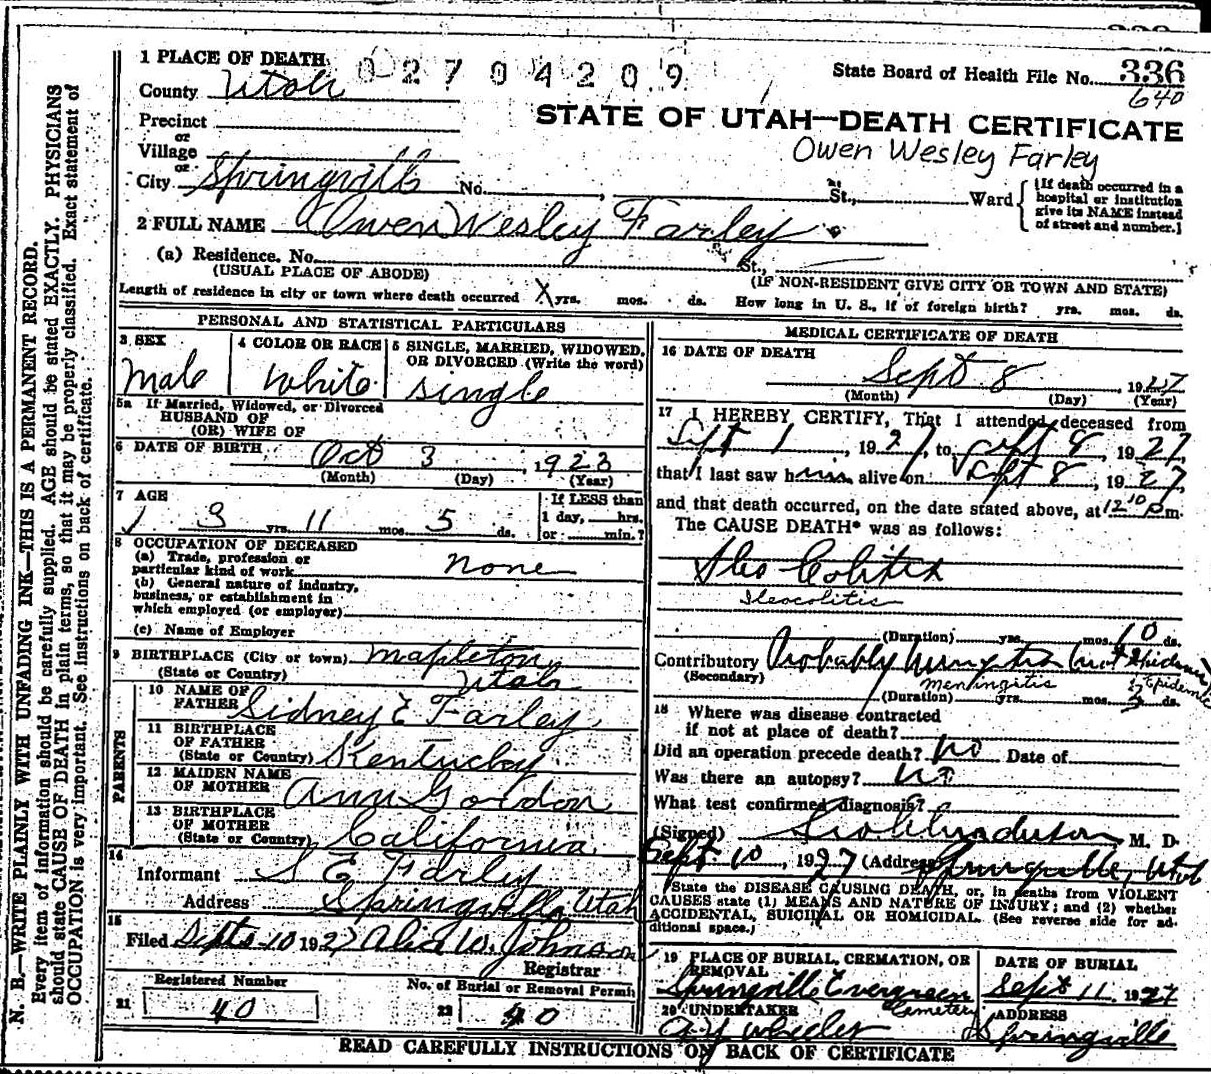 1 PLACE OF DEATH 02704209 State Board of Health File No. 336
640
County Utah
STATE OF UTAH—DEATH CERTIFICATE
Precinct
or
Village
Owen Wesley Farley
or
City Springville No. St., Ward {If death occurred in a hospital or institution give its NAME instead of street and number.}
2 FULL NAME Owen Wesley Farley
(a) Residence. No. St.,
(USUAL PLACE OF ABODE) (IF NON-RESIDENT GIVE CITY OR TOWN AND STATE)
Length of residence in city or town where death occurred X yrs. mos. ds. How long in U. S., if of foreign birth? yrs. mos. ds.
PERSONAL AND STATISTICAL PARTICULARS
3 SEX
Male
4 COLOR OR RACE
White
5 SINGLE, MARRIED, WIDOWED,
OR DIVORCED (Write the word)
Single
5a If Married, Widowed, or Divorced
HUSBAND OF
(OR) WIFE OF
6 DATE OF BIRTH Oct 3, 1923
(Month) (Day) (Year)
7 AGE
3 yrs. 11 mos. 5 ds.
If LESS than
1 day, hrs.
or min.?
8 OCCUPATION OF DECEASED
(a) Trade, profession or
particular kind of work None
(b) General nature of industry,
business, or establishment in
which employed (or employer)
(c) Name of Employer
9 BIRTHPLACE (City or town) Mapleton
(State or Country) Utah
PARENTS
10 NAME OF
FATHER Sidney E Farley
11 BIRTHPLACE
OF FATHER
(State or Country) Kentucky
12 MAIDEN NAME
OF MOTHER Ann Gordon
13 BIRTHPLACE
OF MOTHER
(State or Country) California
14
Informant S E Farley
Address Springville Utah
15
Filed Sept 10 1927 Alice W. Johnson
Registrar
Registered Number
21 40
No. of Burial or Removal Permit
22 40
MEDICAL CERTIFICATE OF DEATH
16 DATE OF DEATH
Sept 8, 1927
(Month) (Day) (Year)
17 I HEREBY CERTIFY, That I attended deceased from
Sept 1, 1927, to Sept 8, 1927,
that I last saw him alive on Sept 8, 1927,
and that death occurred, on the date stated above, at 12 10 p m.
The CAUSE DEATH* was as follows:
Ileo Colitis
Ileocolitis
(Duration) yrs. mos. 10 ds.
Contributory Probably Meningitis (not Epidemic)
(Secondary) Meningitis Epidemic
(Duration) yrs. mos. ds.
18 Where was disease contracted
if not at place of death?
Did an operation precede death? No Date of
Was there an autopsy? No
What test confirmed diagnosis?
(Signed) M. D.
Sept 10, 1927 (Address Springville, Utah
*State the DISEASE CAUSING DEATH, or, in deaths from VIOLENT
CAUSES state (1) MEANS AND NATURE OF INJURY; and (2) whether
ACCIDENTAL, SUICIDAL OR HOMICIDAL. (See reverse side for ad-
ditional space.)
19 PLACE OF BURIAL, CREMATION, OR
REMOVAL
Springville Evergreen
Cemetery
DATE OF BURIAL
Sept 11 1927
20 UNDERTAKER
A Y Wheeler
ADDRESS
Springville
READ CAREFULLY INSTRUCTIONS ON BACK OF CERTIFICATE
N. B.—WRITE PLAINLY WITH UNFADING INK—THIS IS A PERMANENT RECORD.
Every item of information should be carefully supplied. AGE should be stated EXACTLY. PHYSICIANS
should state CAUSE OF DEATH in plain terms, so that it may be properly classified. Exact statement of
OCCUPATION is very important. See instructions on back of certificate.